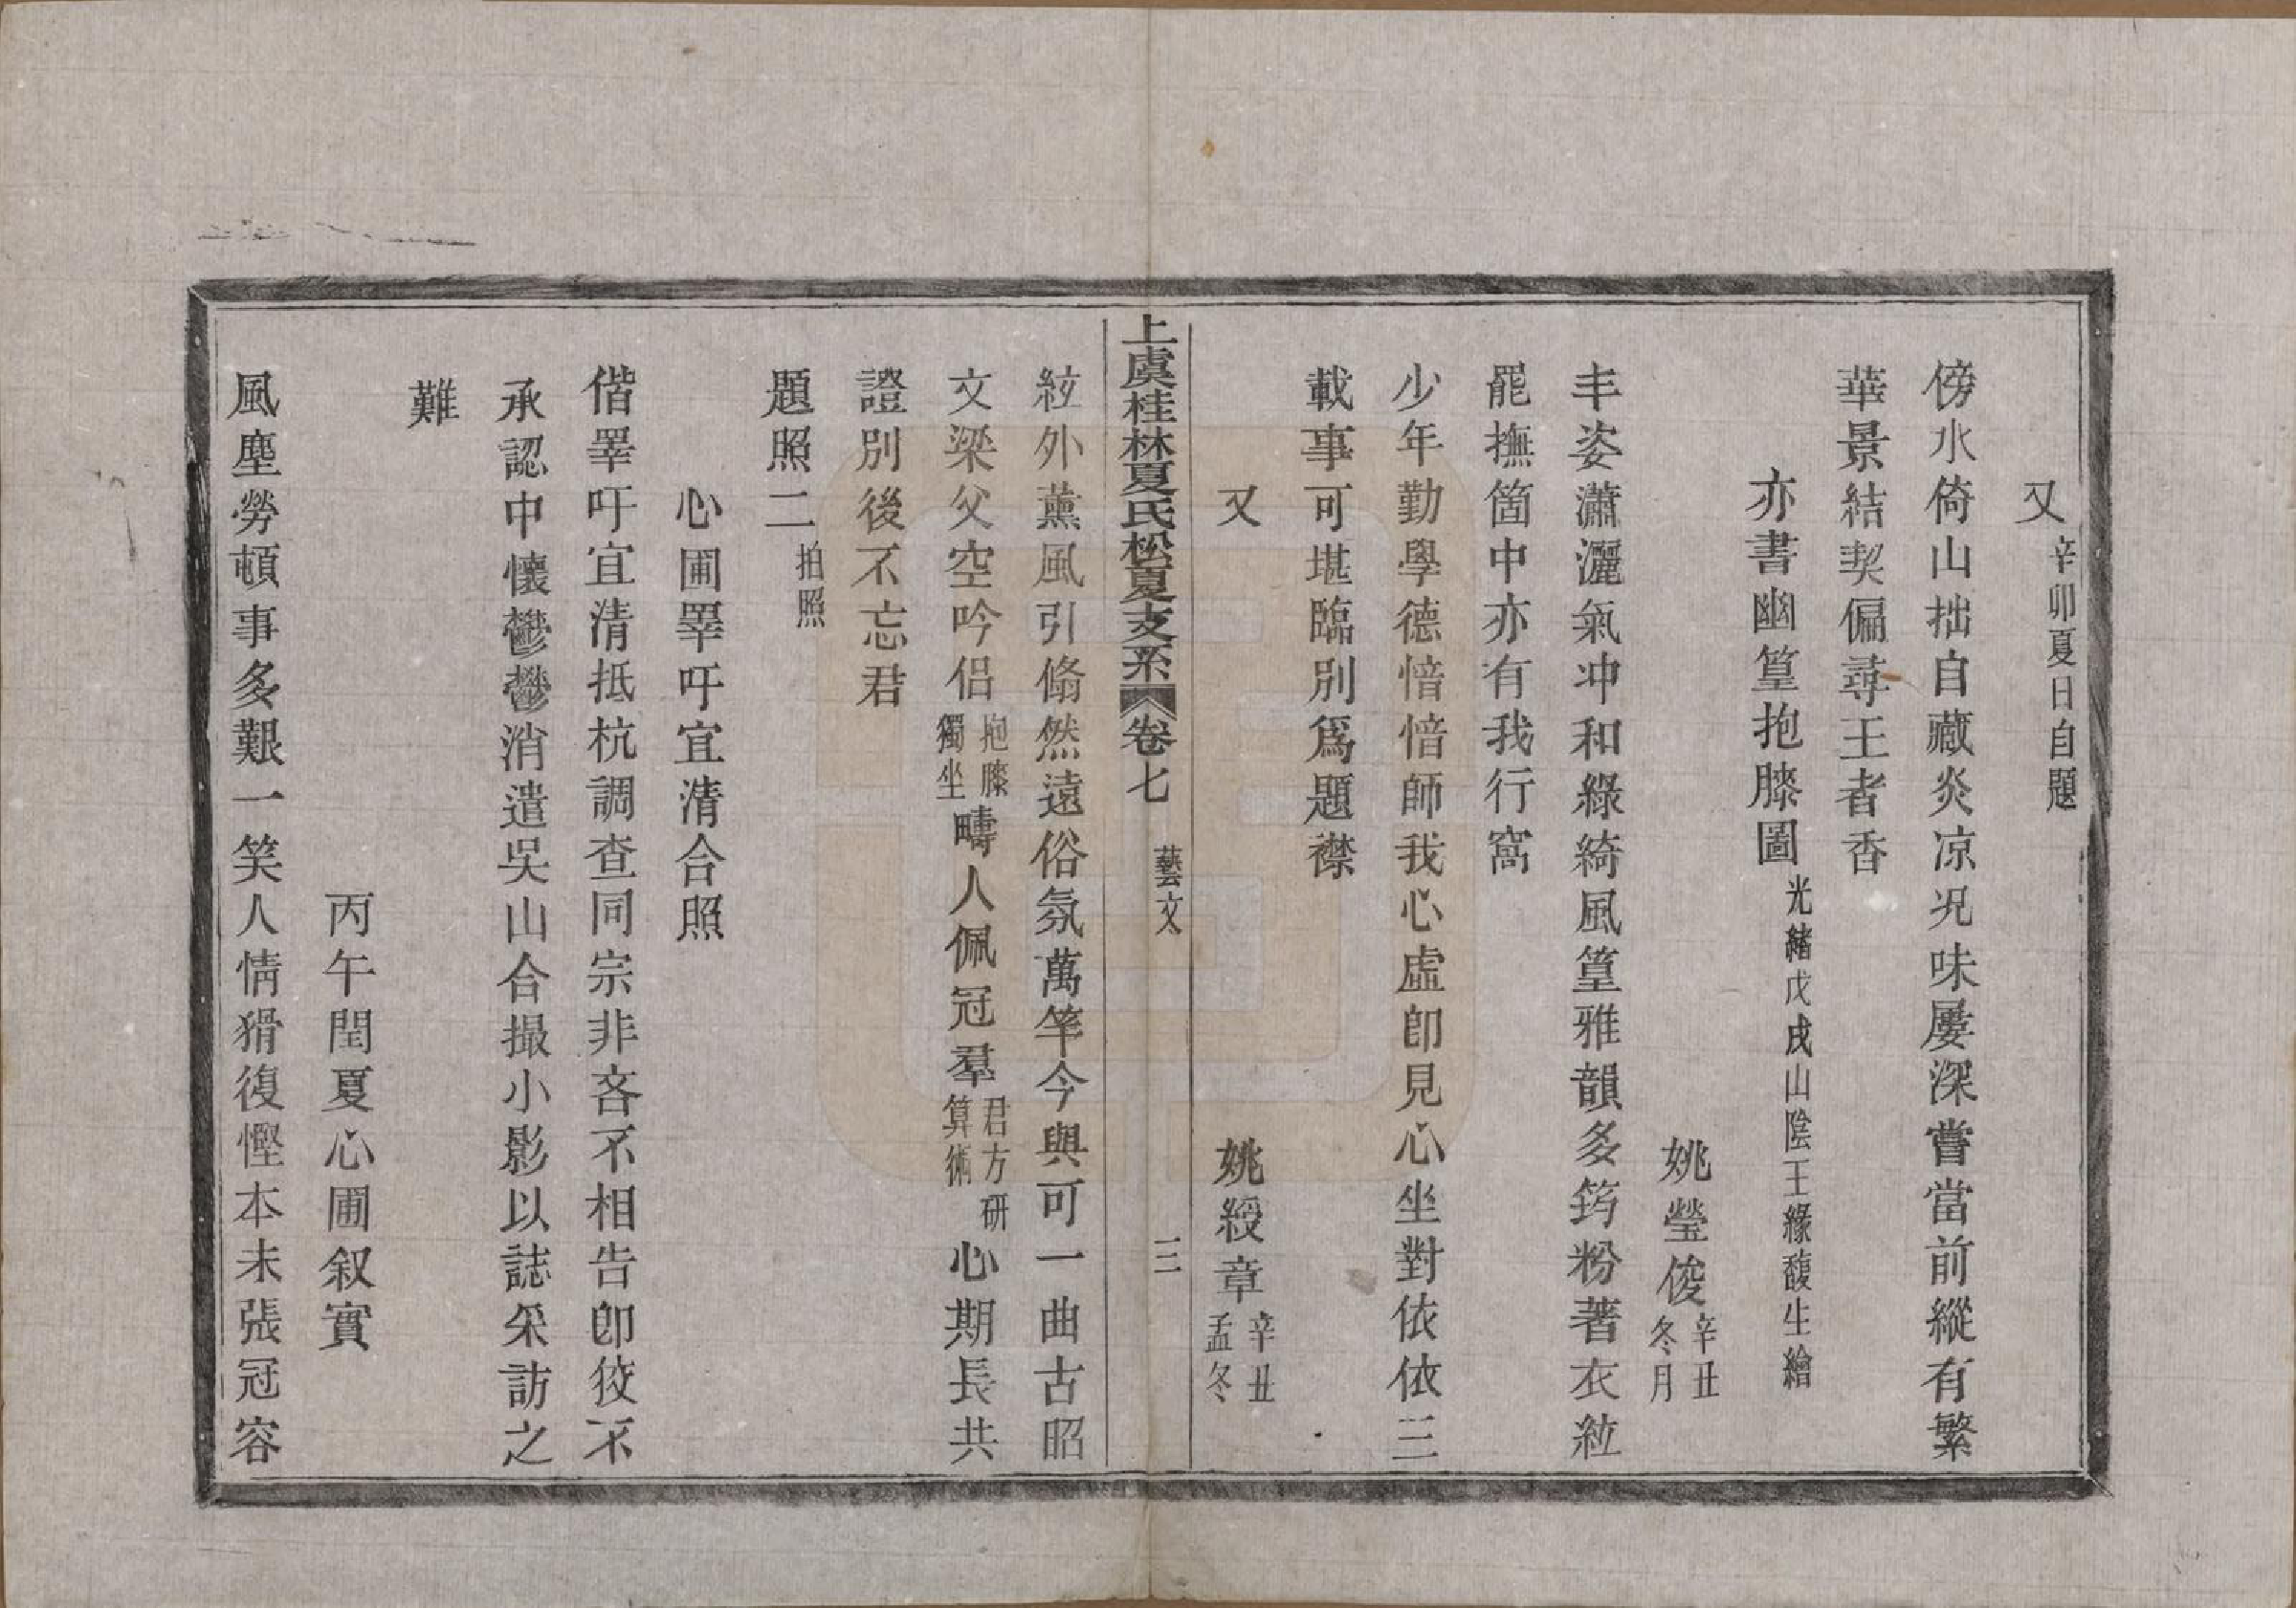 又 辛卯夏日自題
傍水倚山拙自藏炎凉况味屢深嘗當前縱有繁
華景結契偏尋王者香
亦書幽篁抱膝圖 光緒戊戌山陰王緣馥生繪
姚瑩俊 辛丑冬月
丰姿瀟灑氣冲和綠綺風篁雅韻多筠粉著衣絃
罷撫箇中亦有我行窩
少年勤學德愔愔師我心虛卽見心坐對依依三
載事可堪臨別爲題襟
又
姚綬章 辛丑孟冬
上虞桂林夏氏松夏支系 卷七 藝文 三
絃外薰風引翛然遠俗氛萬竿今與可一曲古昭
文梁父空吟侶 抱膝獨坐 疇人佩冠羣 君方研算術 心期長共
證別後不忘君
題照二 拍照
心圃睪吁宜清合照
偕睪吁宜清抵杭調查同宗非吝不相告卽狡不
承認中懷鬱鬱消遣吳山合撮小影以誌采訪之
難
丙午閏夏心圃叙實
風塵勞頓事多艱一笑人情猾復慳本未張冠容